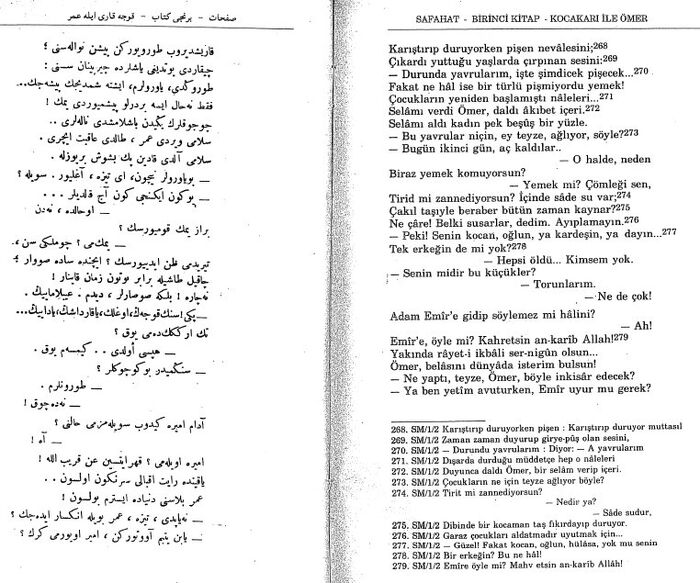 صفحات - برنجی کتاب - قوجه قاری ایله عمر
قاریشدیروب طورویورکن پیشن نواله‌سنی ؛
چیقاردی یوتدیغی یاشلرده چیرپینان سسنی :
طوروکدی، یاورولرم، ایشته شمدیجك پیشه‌جك...
فقط نه‌حال ایسه بردرلو پیشمیوردی یمك !
چوجوقلرك یکیدن باشلامشدی ناله‌لری ..
سلامی ویردی عمر ، طالدی عاقبت ایچری .
سلامی آلدی قادین پك بشوش بریوزله .
— بویاورولر نیچون، ای تیزه ، آغلیور . سویله ؟
— بوکون ایکنجی کون آچ قالدیلر . . .
— اوحالده ، نه‌دن
براز یمك قومیورسك ؟
— یمك‌می ؟ چوملکی سن ،
تیریدمی ظن ایدییورسك ؟ ایچنده ساده صووار ؛
چاقیل طاشیله برابر بوتون زمان قاینار !
نه‌چاره ! بلکه صوصارلر ، دیدم . عیبلامایك .
— پکی ! سنك قوجه‌ك، اوغلك، یاقارداشك، یادایيك...
تك ارککك‌ده‌می یوق ؟
— هپسی اولدی . . کیمسه‌م یوق .
— سنکمیدر بوکوچوکلر ؟
— طورونلرم .
— نه‌ده‌چوق !
آدام امیره کیدوب سویله‌مزمی حالنی ؟
— آه !
امیره اویله‌می ؟ قهر ایتسین عن قریب الله !
یاقینده رایت اقبالی سرنکون اولسون . .
عمر بلاسنی دنیاده ایسترم بولسون !
— نه‌یاپدی ، تیزه ، عمر بویله انکسار ایده‌جك ؟
— یابن یتیم آووتورکن ، امیر اویورمی کرك ؟
SAFAHAT - BİRİNCİ KİTAP - KOCAKARI İLE ÖMER
Karıştırıp duruyorken pişen nevâlesini;268
Çıkardı yuttuğu yaşlarda çırpınan sesini:269
— Durunda yavrularım, işte şimdicek pişecek...270
Fakat ne hâl ise bir türlü pişmiyordu yemek!
Çocukların yeniden başlamıştı nâleleri...271
Selâmı verdi Ömer, daldı âkıbet içeri.272
Selâmı aldı kadın pek beşûş bir yüzle.
— Bu yavrular niçin, ey teyze, ağlıyor, söyle?273
— Bugün ikinci gün, aç kaldılar..
— O halde, neden
Biraz yemek komuyorsun?
— Yemek mi? Çömleği sen,
Tirid mi zannediyorsun? İçinde sâde su var;274
Çakıl taşiyle beraber bütün zaman kaynar?275
Ne çâre! Belki susarlar, dedim. Ayıplamayın.276
— Peki! Senin kocan, oğlun, ya kardeşin, ya dayın...277
Tek erkeğin de mi yok?278
— Hepsi öldü... Kimsem yok.
— Senin midir bu küçükler?
— Torunlarım.
— Ne de çok!
Adam Emîr'e gidip söylemez mi hâlini?
— Ah!
Emîr'e, öyle mi? Kahretsin an-karîb Allah!279
Yakında râyet-i ikbâli ser-nigûn olsun...
Ömer, belâsını dünyâda isterim bulsun!
— Ne yaptı, teyze, Ömer, böyle inkisâr edecek?
— Ya ben yetîm avuturken, Emîr uyur mu gerek?
268. SM/1/2 Karıştırıp duruyorken pişen : Karıştırıp duruyor muttasıl
269. SM/1/2 Zaman zaman duyurup girye-pûş olan sesini,
270. SM/1/2 — Durundu yavrularım : Diyor: — A yavrularım
271. SM/1/2 Dışarda durduğu müddetçe hep o nâleleri
272. SM/1/2 Duyunca daldı Ömer, bir selâm verip içeri.
273. SM/1/2 Çocukların ne için teyze ağlıyor böyle?
274. SM/1/2 Tirit mi zannediyorsun?
— Nedir ya?
— Sâde sudur,
275. SM/1/2 Dibinde bir kocaman taş fıkırdayıp duruyor.
276. SM/1/2 Garaz çocukları aldatmadır uyutmak için...
277. SM/1/2 — Güzel! Fakat kocan, oğlun, hülâsa, yok mu senin
278. SM/1/2 Bir erkeğin? Bu ne hâl!
279. SM/1/2 Emîre öyle mi? Mahv etsin an-karîb Allâh!